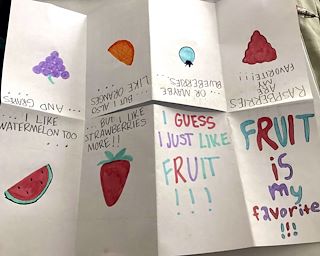 RASPBERRIES
ARE
MY
FAVORITE!!!
....
... OR MAYBE
BLUEBERRIES
....
... BUT I ALSO
LIKE ORANGES
....
... AND GRAPES
....
... I LIKE
WATERMELON TOO
....
... BUT I LIKE
STRAWBERRIES
MORE!!
I GUESS
I JUST LIKE
FRUIT
!!!
FRUIT
is
my
favorite
!!!